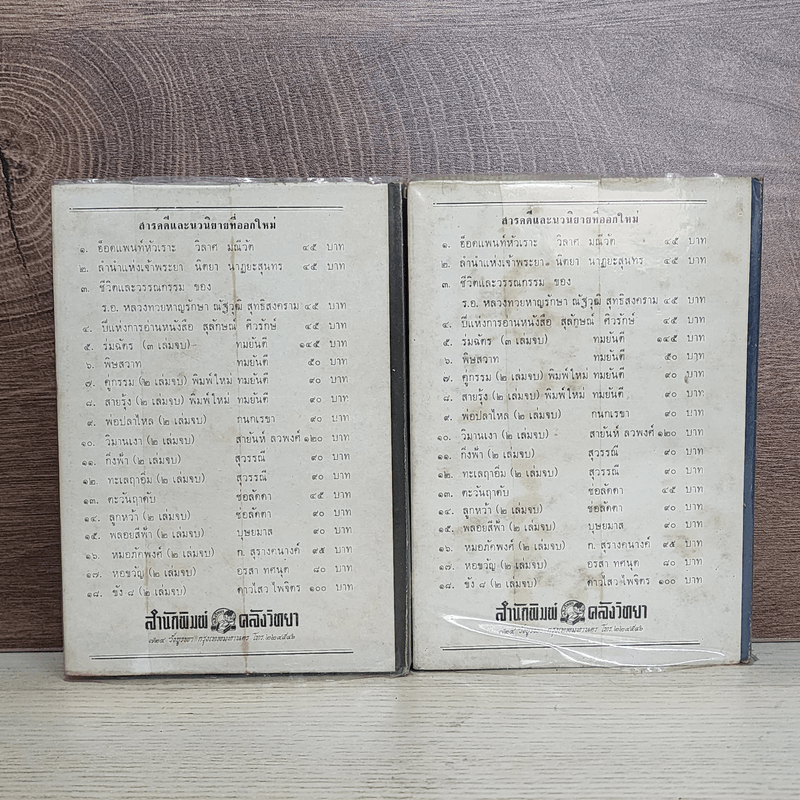 สารคดีและนวนิยายที่ออกใหม่
๑. ฮ็อตแพนท์หัวเราะ วิลาศ มณีวัต ๔๕ บาท
๒. ลำนำแห่งเจ้าพระยา นิตยา นาฏยะสุนทร ๔๕ บาท
๓. ชีวิตและวรรณกรรม ของ
ร.อ. หลวงทวยหาญรักษา ณัฐวุฒิ สุทธิสงคราม ๔๕ บาท
๔. ปีแห่งการอ่านหนังสือ สุลักษณ์ ศิวรักษ์ ๔๕ บาท
๕. ร่มฉัตร (๓ เล่มจบ) ทมยันตี ๑๔๕ บาท
๖. พิษสวาท ทมยันตี ๕๐ บาท
๗. คู่กรรม (๒ เล่มจบ) พิมพ์ใหม่ ทมยันตี ๙๐ บาท
๘. สายรุ้ง (๒ เล่มจบ) พิมพ์ใหม่ ทมยันตี ๙๐ บาท
๙. พ่อปลาไหล (๒ เล่มจบ) กนกเรขา ๙๐ บาท
๑๐. วิมานเงา (๒ เล่มจบ) สายันห์ ลวพงศ์ ๑๒๐ บาท
๑๑. กิ่งฟ้า (๒ เล่มจบ) สุวรรณี ๙๐ บาท
๑๒. ทะเลฤาอิ่ม (๒ เล่มจบ) สุวรรณี ๙๐ บาท
๑๓. ตะวันฤาดับ ช่อลัดดา ๔๕ บาท
๑๔. ลูกหว้า (๒ เล่มจบ) ช่อลัดดา ๙๐ บาท
๑๕. พลอยสีฟ้า (๒ เล่มจบ) บุษยมาส ๙๐ บาท
๑๖. หมอภัคพงศ์ (๒ เล่มจบ) ก. สุรางคนางค์ ๙๕ บาท
๑๗. หอขวัญ (๒ เล่มจบ) อรสา ทศนุต ๘๐ บาท
๑๘. ขัง ๘ (๒ เล่มจบ) ดาวไสว ไพจิตร ๑๐๐ บาท
สำนักพิมพ์ คลังวิทยา
๗๒๔ วังบูรพา กรุงเทพมหานคร โทร. ๒๒๔๕๔๖
สารคดีและนวนิยายที่ออกใหม่
๑. ฮ็อตแพนท์หัวเราะ วิลาศ มณีวัต ๔๕ บาท
๒. ลำนำแห่งเจ้าพระยา นิตยา นาฏยะสุนทร ๔๕ บาท
๓. ชีวิตและวรรณกรรม ของ
ร.อ. หลวงทวยหาญรักษา ณัฐวุฒิ สุทธิสงคราม ๔๕ บาท
๔. ปีแห่งการอ่านหนังสือ สุลักษณ์ ศิวรักษ์ ๔๕ บาท
๕. ร่มฉัตร (๓ เล่มจบ) ทมยันตี ๑๔๕ บาท
๖. พิษสวาท ทมยันตี ๕๐ บาท
๗. คู่กรรม (๒ เล่มจบ) พิมพ์ใหม่ ทมยันตี ๙๐ บาท
๘. สายรุ้ง (๒ เล่มจบ) พิมพ์ใหม่ ทมยันตี ๙๐ บาท
๙. พ่อปลาไหล (๒ เล่มจบ) กนกเรขา ๙๐ บาท
๑๐. วิมานเงา (๒ เล่มจบ) สายันห์ ลวพงศ์ ๑๒๐ บาท
๑๑. กิ่งฟ้า (๒ เล่มจบ) สุวรรณี ๙๐ บาท
๑๒. ทะเลฤาอิ่ม (๒ เล่มจบ) สุวรรณี ๙๐ บาท
๑๓. ตะวันฤาดับ ช่อลัดดา ๔๕ บาท
๑๔. ลูกหว้า (๒ เล่มจบ) ช่อลัดดา ๙๐ บาท
๑๕. พลอยสีฟ้า (๒ เล่มจบ) บุษยมาส ๙๐ บาท
๑๖. หมอภัคพงศ์ (๒ เล่มจบ) ก. สุรางคนางค์ ๙๕ บาท
๑๗. หอขวัญ (๒ เล่มจบ) อรสา ทศนุต ๘๐ บาท
๑๘. ขัง ๘ (๒ เล่มจบ) ดาวไสว ไพจิตร ๑๐๐ บาท
สำนักพิมพ์ คลังวิทยา
๗๒๔ วังบูรพา กรุงเทพมหานคร โทร. ๒๒๔๕๔๖